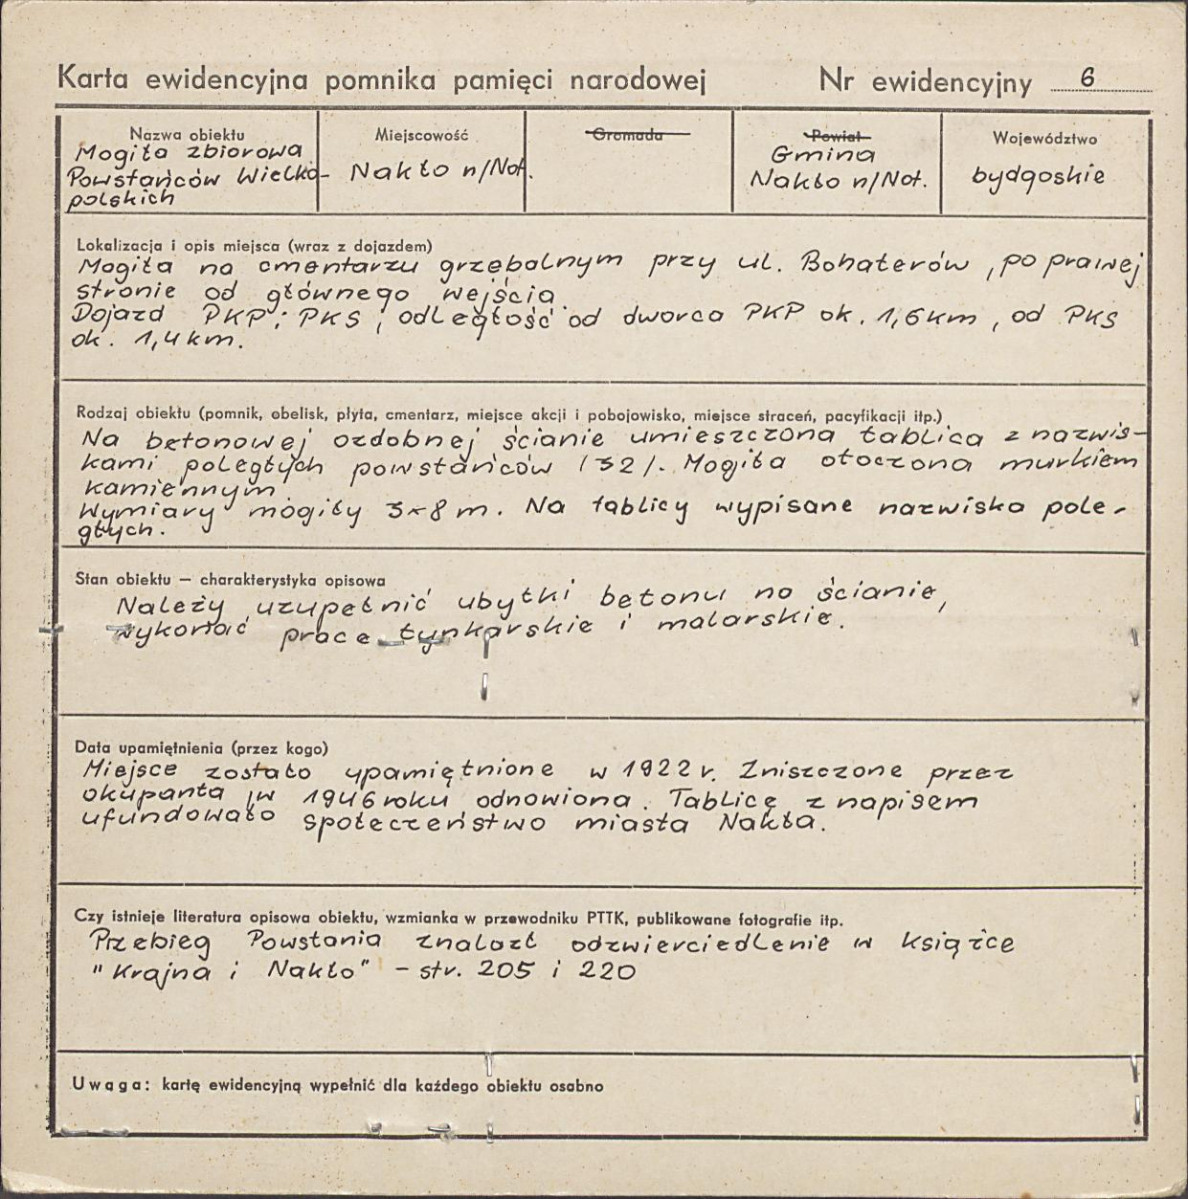 Karta ewidencyjna pomnika pamięci narodowej Nr ewidencyjny 6
Nazwa obiektu
Mogiła zbiorowa
Powstańców Wielko-
polskich
Miejscowość
Nakło n/Not.
Gromada
Powiat
Gmina
Nakło n/Not.
Województwo
bydgoskie
Lokalizacja i opis miejsca (wraz z dojazdem)
Mogiła na cmentarzu grzebalnym przy ul. Bohaterów, po prawej
stronie od głównego wejścia.
Dojazd PKP i PKS, odległość od dworca PKP ok. 1,6 km, od PKS
ok. 1,4 km.
Rodzaj obiektu (pomnik, obelisk, płyta, cmentarz, miejsce akcji i pobojowisko, miejsce straceń, pacyfikacji itp.)
Na betonowej ozdobnej ścianie umieszczona tablica z nazwis-
kami poległych powstańców /52/. Mogiła otoczona murkiem
kamiennym.
Wymiary mogiły 3×8 m. Na tablicy wypisane nazwiska pole-
głych.
Stan obiektu – charakterystyka opisowa
Należy uzupełnić ubytki betonu na ścianie,
wykonać prace tynkarskie i malarskie.
Data upamiętnienia (przez kogo)
Miejsce zostało upamiętnione w 1922 r. Zniszczone przez
okupanta, w 1946 roku odnowiona. Tablicę z napisem
ufundowało społeczeństwo miasta Nakła.
Czy istnieje literatura opisowa obiektu, wzmianka w przewodniku PTTK, publikowane fotografie itp.
Przebieg Powstania znalazł odzwierciedlenie w książce
"Krajna i Nakło" – str. 205 i 220
Uwaga: kartę ewidencyjną wypełnić dla każdego obiektu osobno